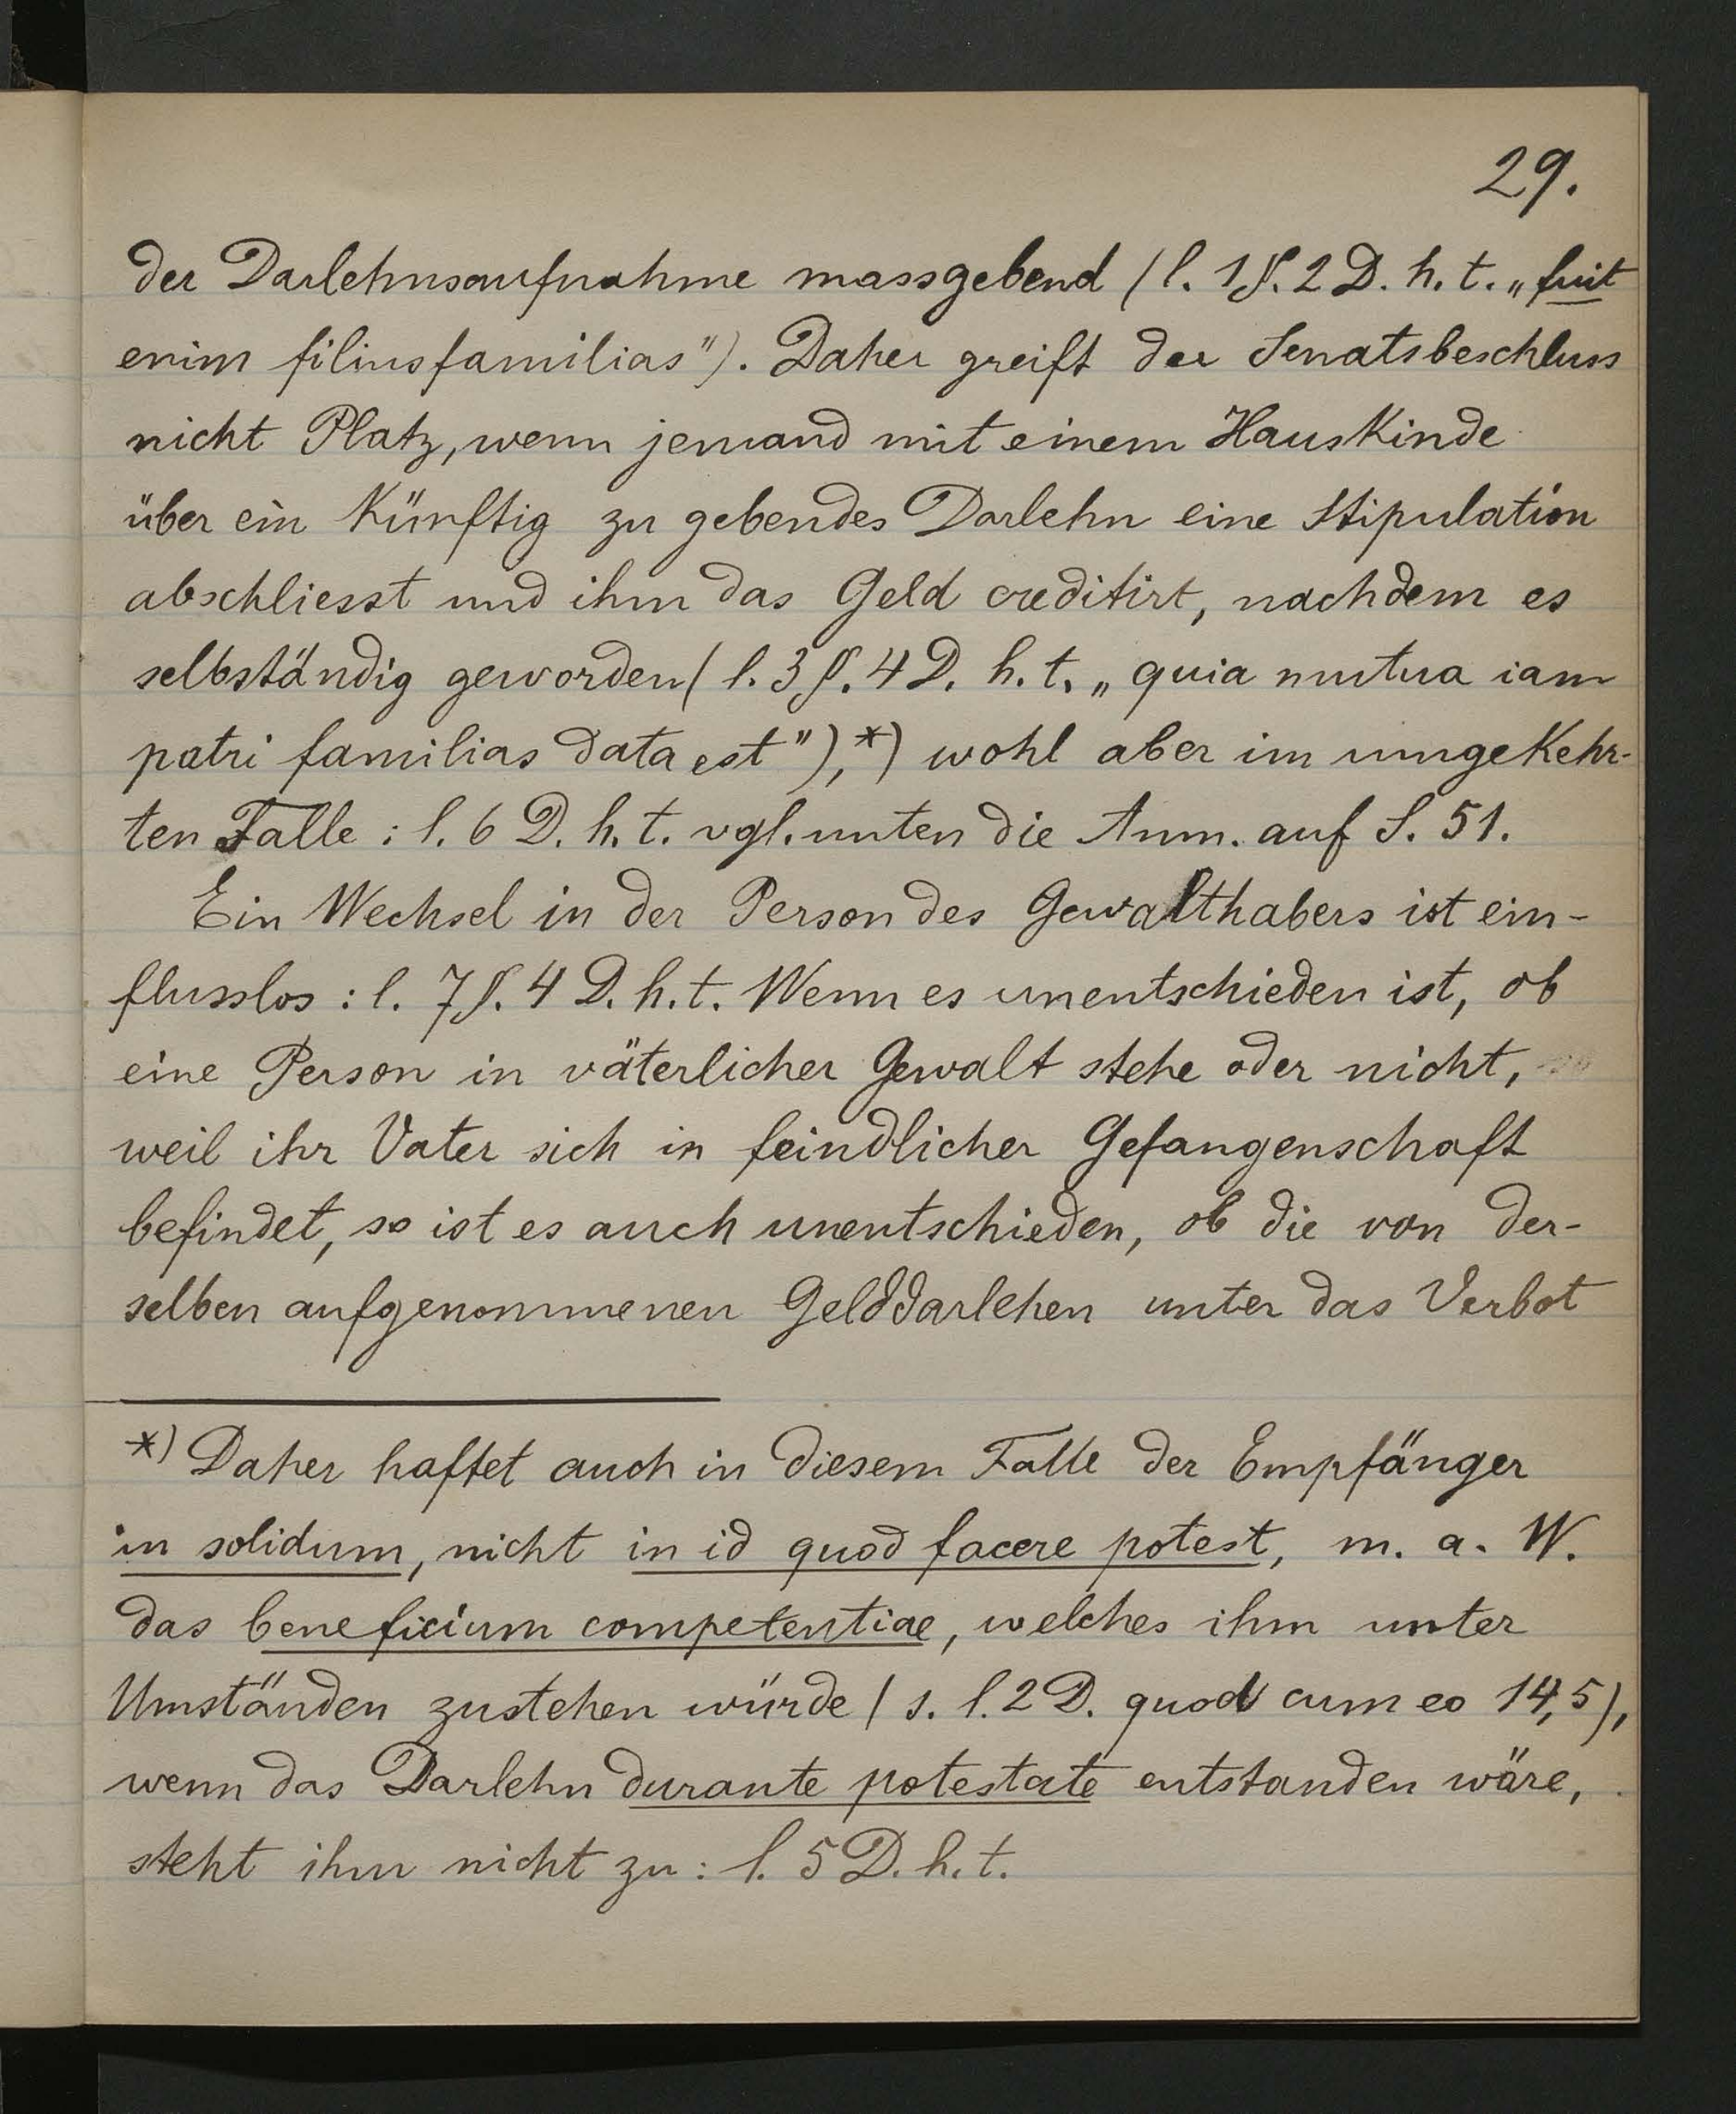 29.
der Darlehnsaufnahme massgebend (l. 1 §. 2 D. h. t. „fuit
enim filiusfamilias"). Daher greift der Senatsbeschluss
nicht Platz, wenn jemand mit einem Hauskinde
über ein künftig zu gebendes Darlehn eine Stipulation
abschliesst und ihm das Geld creditirt, nachdem es
selbständig geworden (l. 3 §. 4 D. h. t. „quia mutua iam
patri familias data est"),*) wohl aber im umgekehr-
ten Falle: l. 6 D. h. t. vgl. unten die Anm. auf S. 51.
Ein Wechsel in der Person des Gewalthabers ist ein-
flusslos: l. 7 §. 4 D. h. t. Wenn es unentschieden ist, ob
eine Person in väterlicher Gewalt stehe oder nicht,
weil ihr Vater sich in feindlicher Gefangenschaft
befindet, so ist es auch unentschieden, ob die von der-
selben aufgenommenen Gelddarlehen unter das Verbot
*) Daher haftet auch in diesem Falle der Empfänger
in solidum, nicht in id quod facere potest, m. a. W.
das beneficium competentiae, welches ihm unter
Umständen zustehen würde (s. l. 2 D. quod cum eo 14,5),
wenn das Darlehn durante potestate entstanden wäre,
steht ihm nicht zu: l. 5 D. h. t.